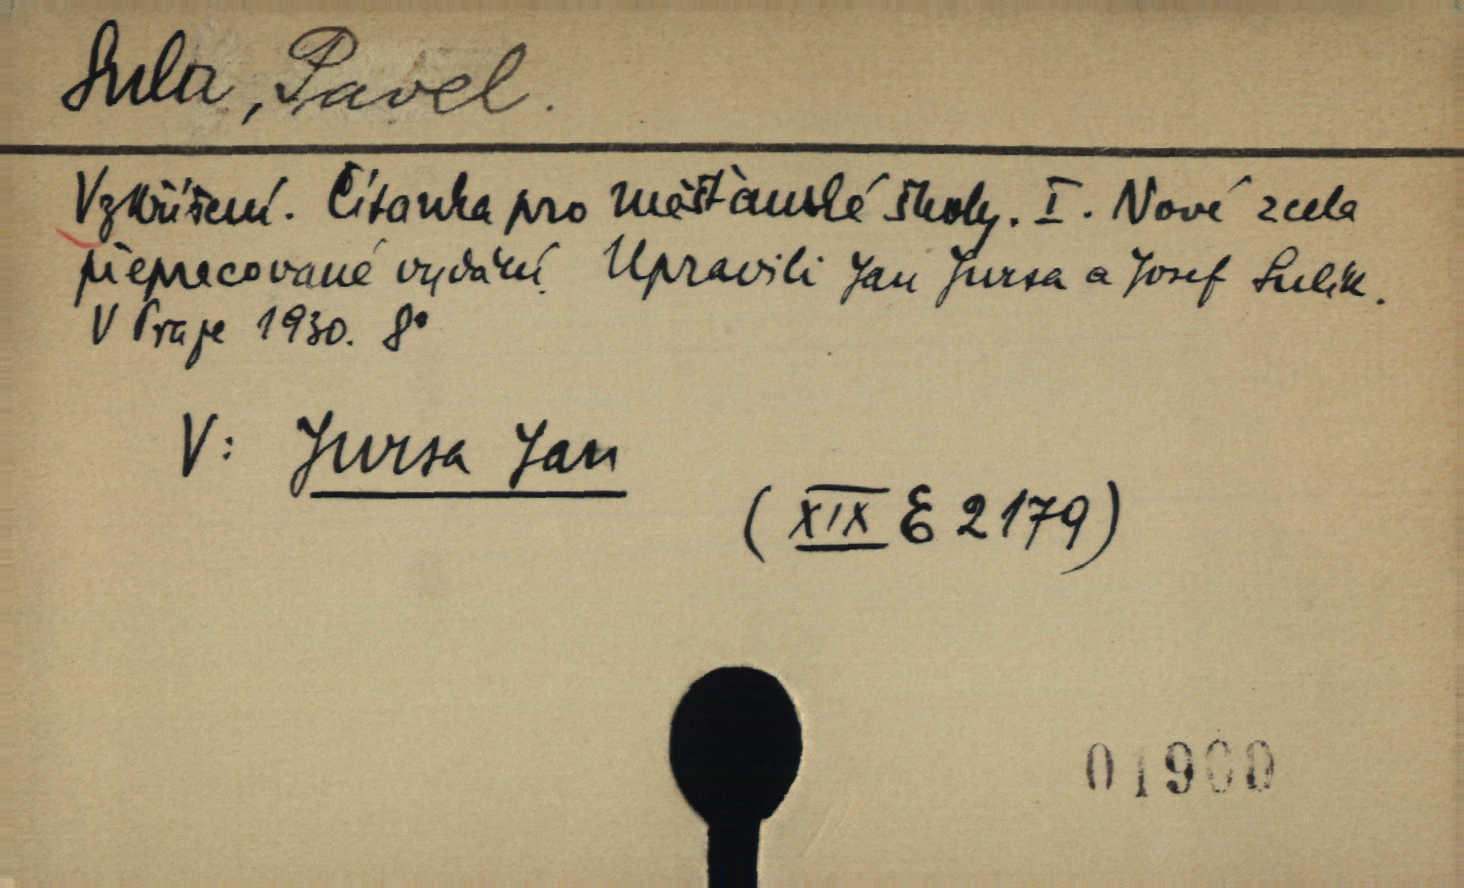 Sula, Pavel.
Vzkříšení. Čítanka pro měšťanské školy. I. Nové zcela
přepracované vydání. Upravili Jan Jursa a Josef Sulík.
V Praze 1930. 8°
V: Jursa Jan
(XIX E 2179)
01900